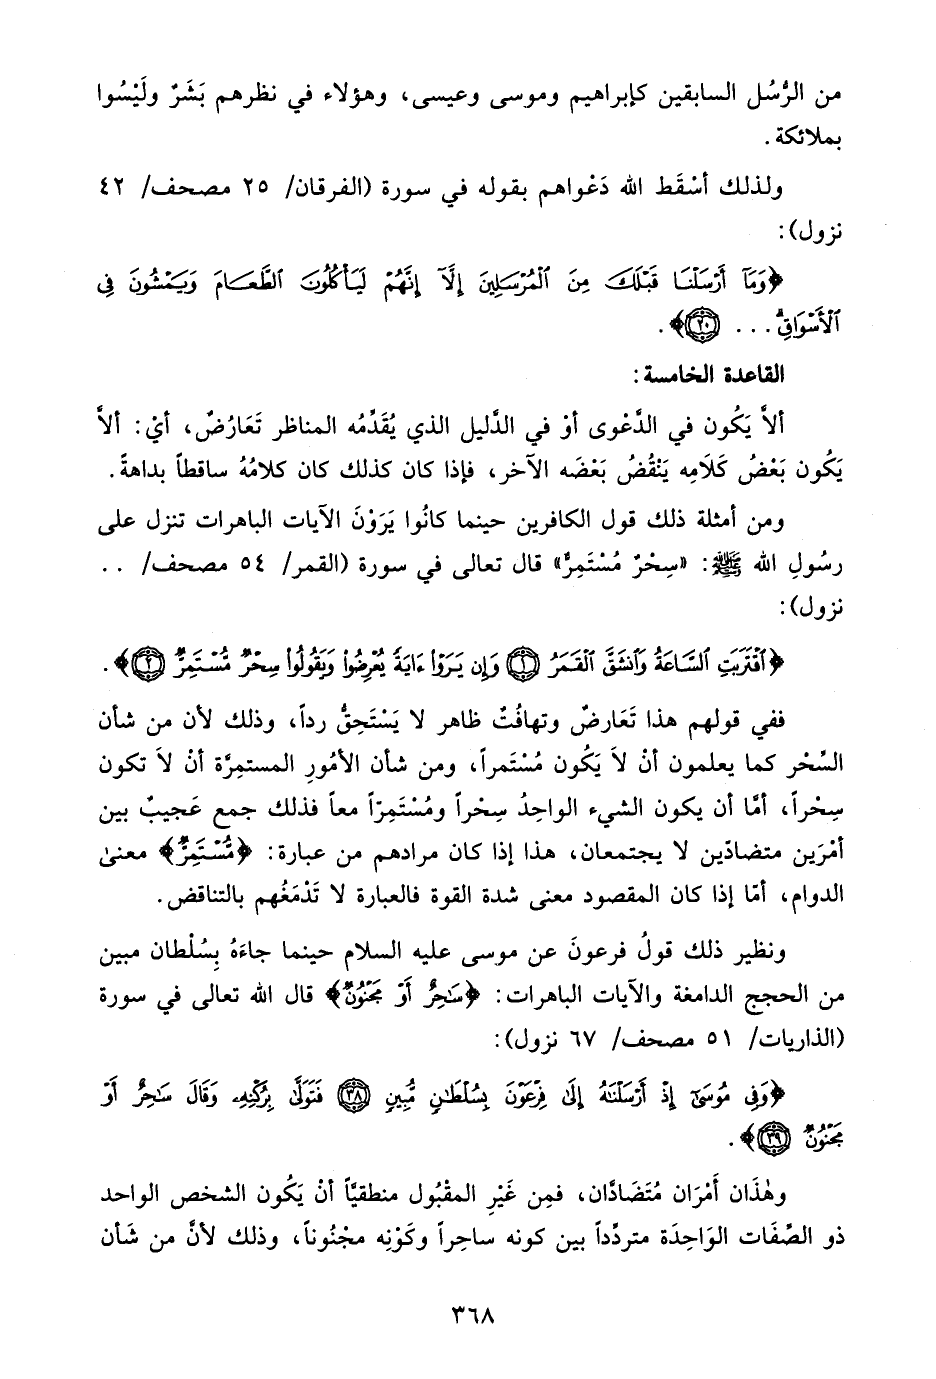 من الرُّسُل السابقين كإبراهيم وموسى وعيسى، وهؤلاء في نظرهم بَشَرٌ ولَيْسُوا
بملائكة.
ولذلك أسْقَط الله دَعْواهم بقوله في سورة (الفرقان/ ٢٥ مصحف/ ٤٢
نزول):
﴿وَمَآ أَرْسَلْنَا قَبْلَكَ مِنَ ٱلْمُرْسَلِينَ إِلَّآ إِنَّهُمْ لَيَأْكُلُونَ ٱلطَّعَامَ وَيَمْشُونَ فِى
ٱلْأَسْوَاقِۗ ... ٢٠﴾.
القاعدة الخامسة:
ألاَّ يَكُون في الدَّعْوى أوْ في الدَّليل الذي يُقَدِّمُه المناظر تَعَارُضٌ، أيْ: ألاَّ
يَكُون بَعْضُ كَلَامِه يَنْقُضُ بَعْضَه الآخر، فإذا كان كذلك كان كلامُهُ ساقطاً بداهةً.
ومن أمثلة ذلك قول الكافرين حينما كانُوا يَرَوْنَ الآيات الباهرات تنزل على
رسُولِ الله ﷺ: «سِحْرٌ مُسْتَمِرٌّ» قال تعالى في سورة (القمر/ ٥٤ مصحف/ ..
نزول):
﴿ٱقْتَرَبَتِ ٱلسَّاعَةُ وَٱنشَقَّ ٱلْقَمَرُ ١ وَإِن يَرَوْا۟ ءَايَةً يُعْرِضُوا۟ وَيَقُولُوا۟ سِحْرٌ مُّسْتَمِرٌّ ٢﴾.
ففي قولهم هذا تَعَارضٌ وتهافُتٌ ظاهر لا يَسْتَحِقُّ رداً، وذلك لأن من شأن
السِّحْر كما يعلمون أنْ لاَ يَكُون مُسْتَمراً، ومن شأن الأمُورِ المستمِرَّة أنْ لاَ تكون
سِحْراً، أمَّا أن يكون الشيء الواحِدُ سِحْراً ومُسْتَمِرّاً معاً فذلك جمع عَجيبٌ بين
أمْرَين متضادّين لا يجتمعان، هذا إذا كان مرادهم من عبارة: ﴿مُّسْتَمِرٌّ﴾ معنىٰ
الدوام، أمّا إذا كان المقصود معنى شدة القوة فالعبارة لا تَدْمَغُهم بالتناقض.
ونظير ذلك قولُ فرعونَ عن موسى عليه السلام حينما جاءَهُ بِسُلْطان مبين
من الحجج الدامغة والآيات الباهرات: ﴿سَاحِرٌ أَوْ مَجْنُونٌ﴾ قال الله تعالى في سورة
(الذاريات/ ٥١ مصحف/ ٦٧ نزول):
﴿وَفِى مُوسَىٰٓ إِذْ أَرْسَلْنَٰهُ إِلَىٰ فِرْعَوْنَ بِسُلْطَٰنٍ مُّبِينٍ ٣٨ فَتَوَلَّىٰ بِرُكْنِهِۦ وَقَالَ سَٰحِرٌ أَوْ
مَجْنُونٌ ٣٩﴾.
وهٰذَان أَمْرَان مُتَضَادَّان، فمِن غَيْرِ المقْبُول منطقيّاً أنْ يَكُون الشخص الواحد
ذو الصِّفَات الوَاحِدَة متردِّداً بين كونه ساحِراً وكَوْنِه مجْنُوناً، وذلك لأنَّ من شَأن
٣٦٨